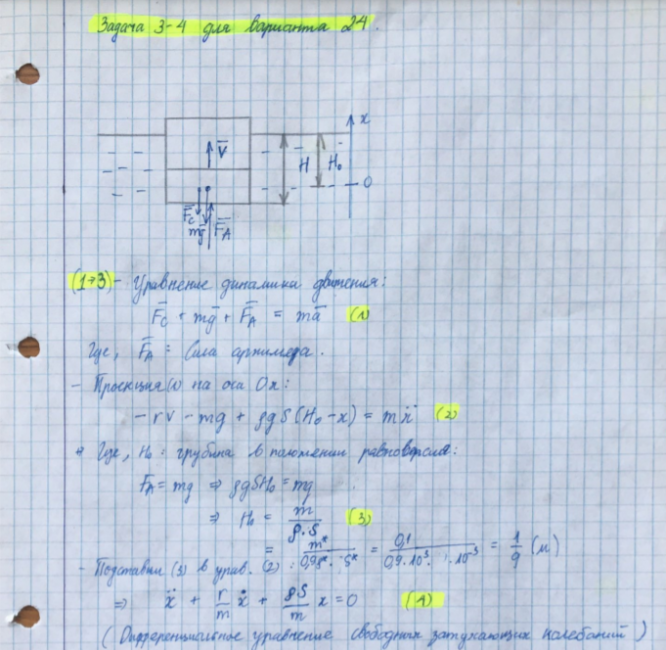 Задача 3-4 для варианта 24.
x
V̄
H H₀
0
F̄c
mḡ F̄A
(1→3) - Уравнение динамики движения:
F̄c + mḡ + F̄A = mā (1)
Где, F̄A = Сила архимеда.
- Проекция (1) на оси Ox:
- rv - mg + ρgS(H₀-x) = mẍ (2)
Где, H₀: глубина в положении равновесия:
FA = mg ⇒ ρgSH₀ = mg
⇒ H₀ = m / ρ.S (3)
= m* / 0,9ρ* . S* = 0,1 / 0,9.10³ . 1.10⁻³ = 1/9 (м)
- Подставим (3) в урав. (2):
⇒ ẍ + r/m ẋ + gS/m x = 0 (4)
(Дифференциальное уравнение свободных затухающих колебаний)